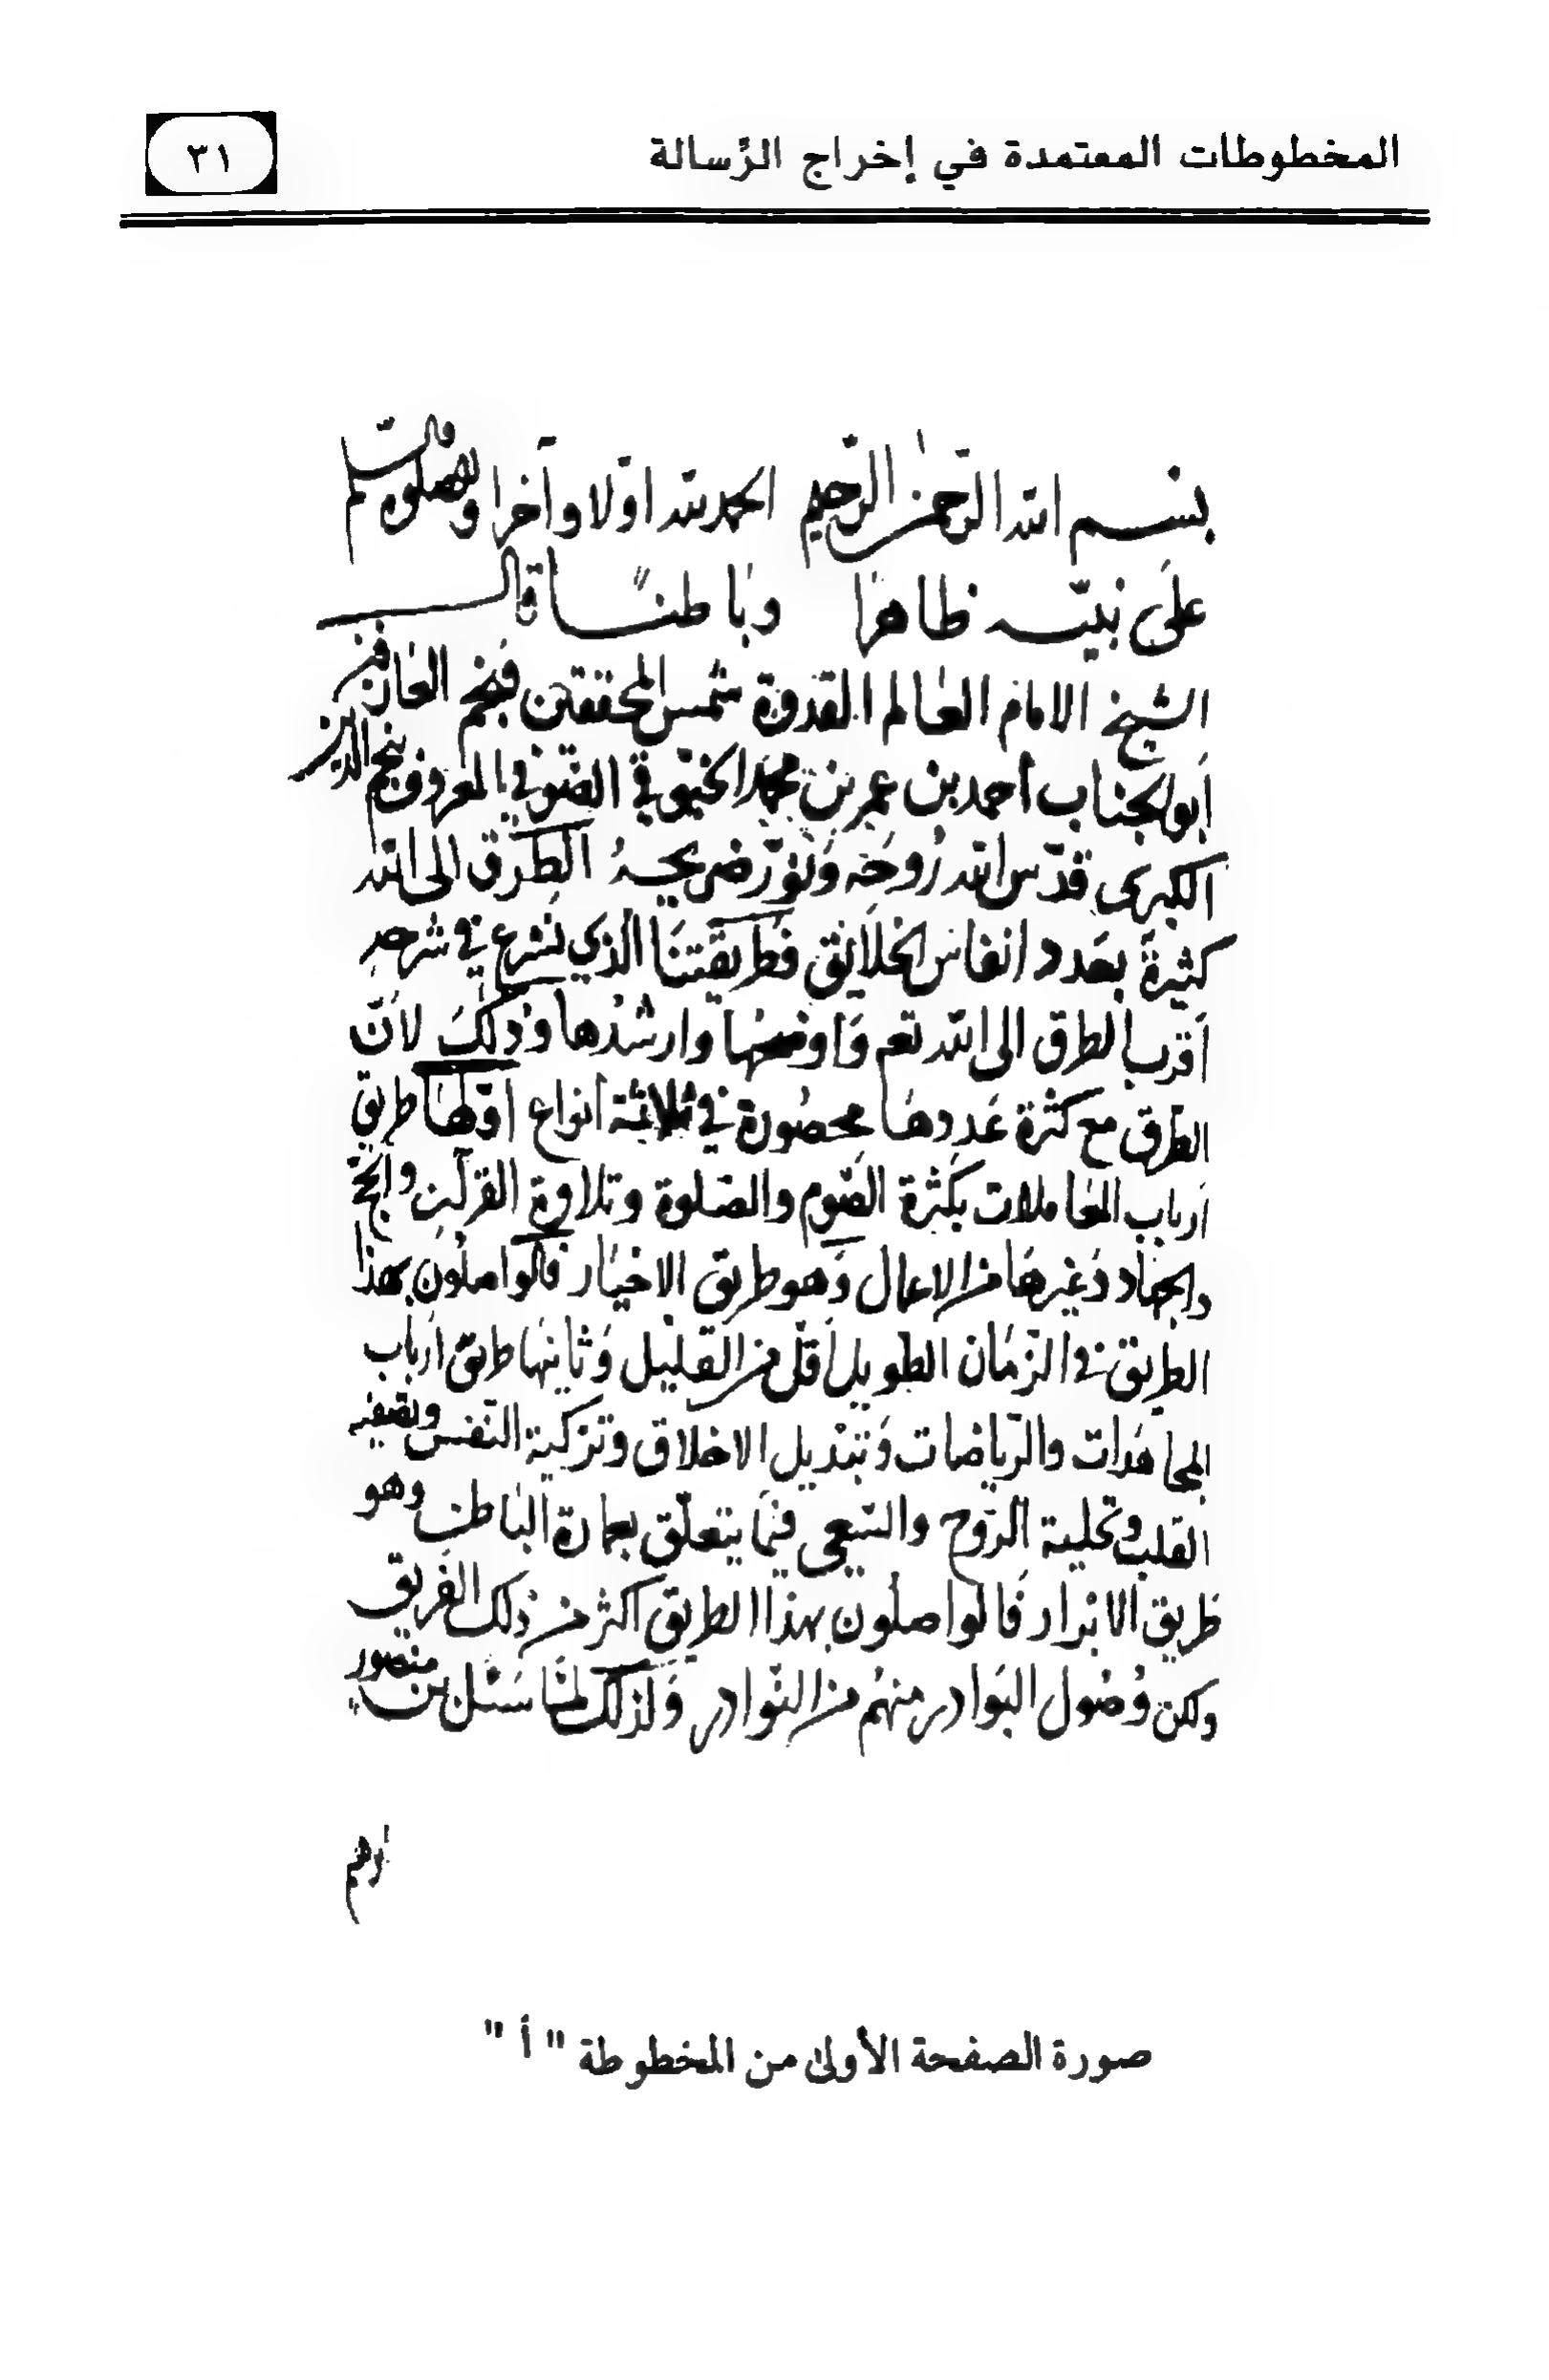 المخطوطات المعتمدة في إخراج الرِّسالة
٣١
بسم الله الرحمن الرحيم الحمد لله اولا وآخرا والصلوة والسلم
على نبيّه ظاهرا وباطنًا قال
الشيخ الامام العالم القدوة شمس المحققين فخم العارفين
أبو الجناب أحمد بن عمر بن محمد الخيوقي الصوفي المعروف بنجم الدين
الكبرى قدّس الله رُوحَه وَنوّر ضريحهُ الطرق الى الله
كثيرةً بعَدد انفاس الخلايق فطريقتنَا الذي نشرع في شرحه
أقرب الطرق الى الله تعم وَاوضحها وارشدها وَذلكَ لأنّ
الطرق مع كثرة عَددهَا محصُورة في ثلاثة أنواع اوّلها طريق
أرباب المعاملات بكثرة الصّوم والصلوة وتلاوة القرآن والحجّ
والجهاد وَغيرهَا من الاعمال وَهو طريق الاخيار فالواصلون بهذا
الطريق في الزمان الطويل أقل من القليل وَثانيها طريق ارباب
المجاهَدات والرّياضات وَتبديل الاخلاق وتزكية النّفس وتصفية
القلب وتحلية الرّوح والسّعي فيمَا يتعلّق بعمارة الباطن وهو
طريق الابرار فالواصلون بهذا الطريق اكثر من ذلك الفريق
ولكن وُصُول البَوادر منهُم من النّوادر وَلذلك لمّا سَئل بن منصور
ابرهم
صورة الصفحة الأولى من المخطوطة " أ "